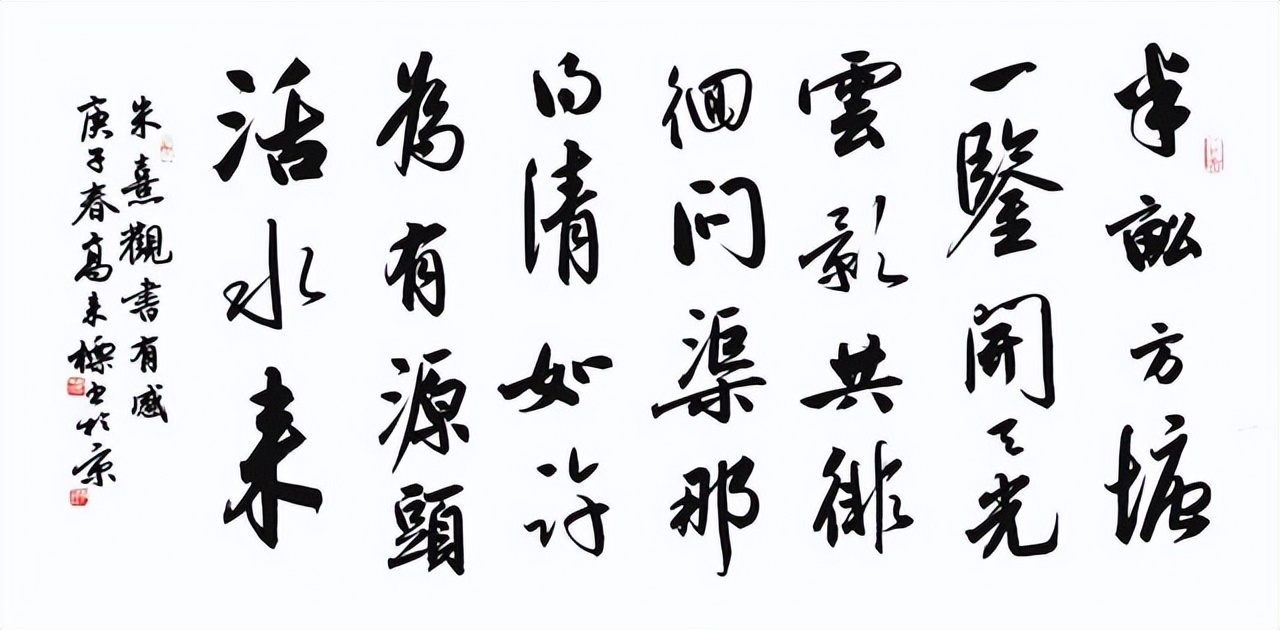 半畝方塘
一鑒開天光
雲影共徘
徊問渠那
得清如許
為有源頭
活水来
朱熹觀書有感
庚子春高来標書於京